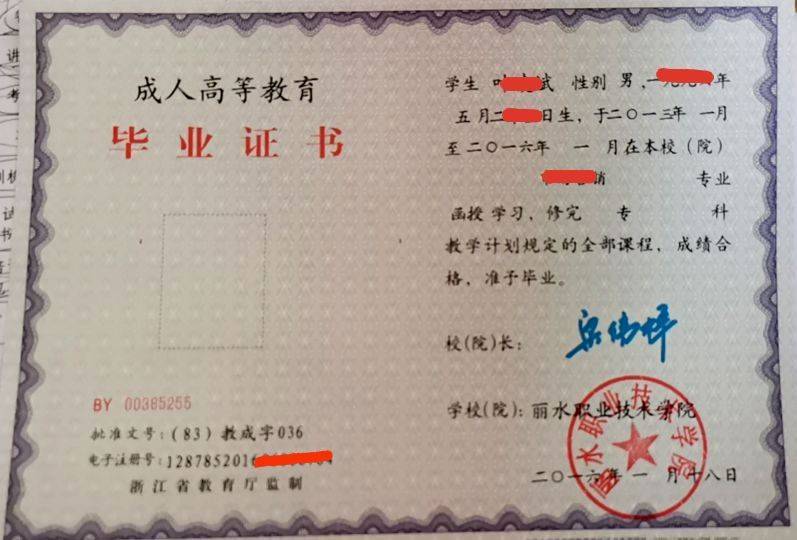 成人高等教育
毕业证书
BY 00385255
批准文号：(83) 教成字036
电子注册号：1287852016
浙江省教育厅监制
学生 斌 性别 男，一九九 年
五月二 日生，于二〇一三年 一月
至二〇一六年 一 月在本校（院）
销 专业
函授 学习，修完 专 科
教学计划规定的全部课程，成绩合
格，准予毕业。
校(院)长：
学校(院)：丽水职业技术学院
二〇一六年 一 月十八日
丽水职业技术学院